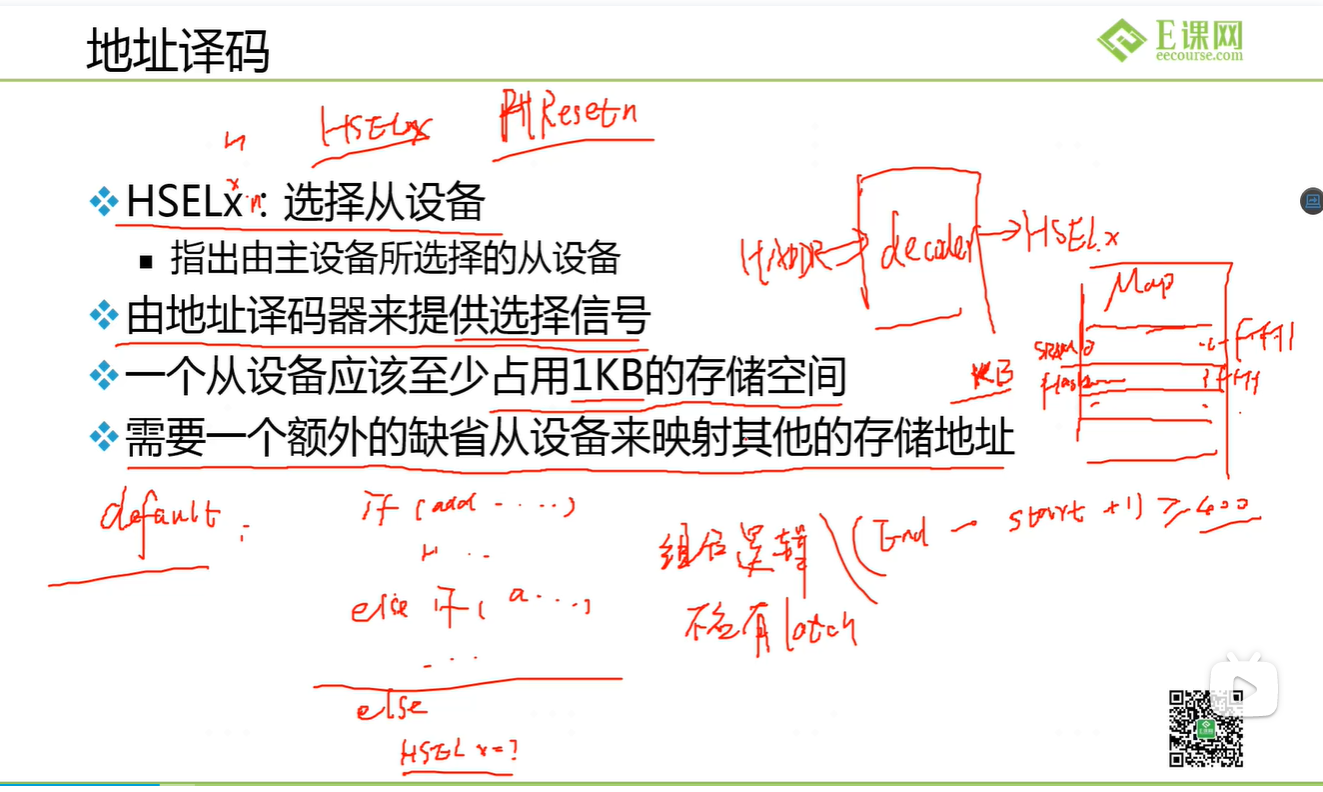 地址译码
E课网
eecourse.com
HSELx
HResetn
HSELx：选择从设备
指出由主设备所选择的从设备
由地址译码器来提供选择信号
一个从设备应该至少占用1KB的存储空间
需要一个额外的缺省从设备来映射其他的存储地址
HADDR
decoder
HSELx
Map
SRAM
flash
KB
default:
if (add ....)
else if ( a...)
...
else
HSELx=?
组合逻辑
不含有latch
(End - start +1) ≥ 400